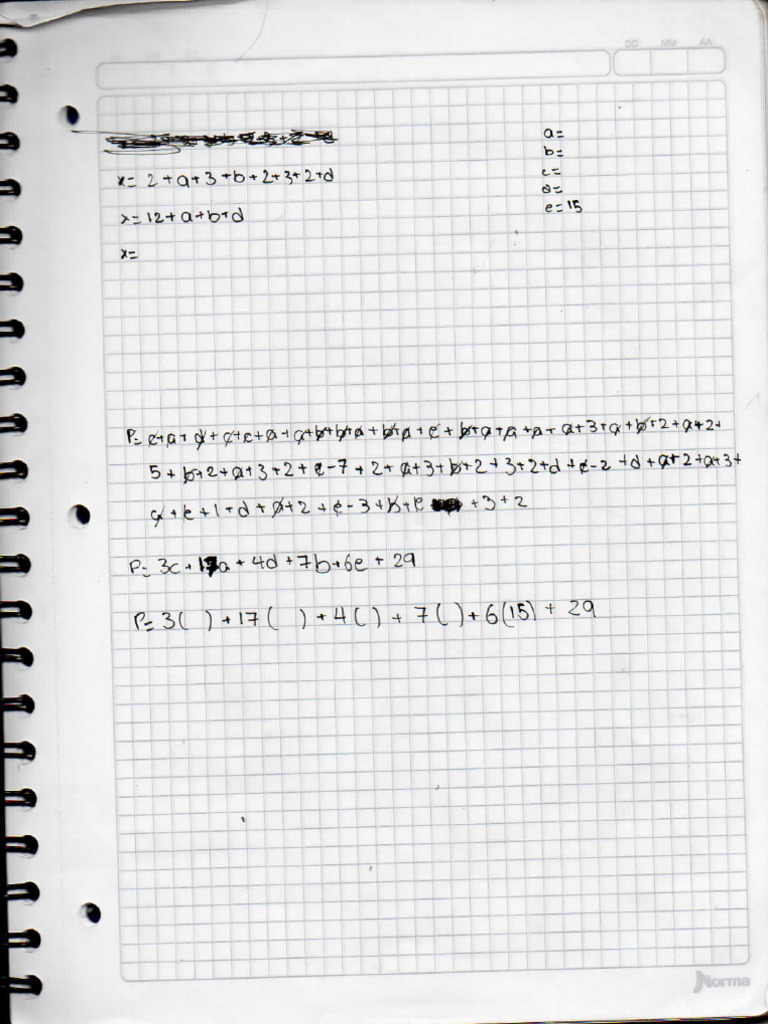 DD MM AA
x= 2+a+3+b+2+3+2+d
x=12+a+b+d
x=
a=
b=
c=
d=
e=15
P= c+a+d+c+e+a+a+b+b+a+b+a+e+b+a+a+a+a+3+a+b+2+a+2+
5+b+2+a+3+2+e-7+2+a+3+b+2+3+2+d+c-2+d+a+2+a+3+
a+e+1+d+a+2+e-3+b+e +3+2
P= 3c+17a+4d+7b+6e+29
P= 3( )+17( )+4( )+7( )+6(15)+29
Norma